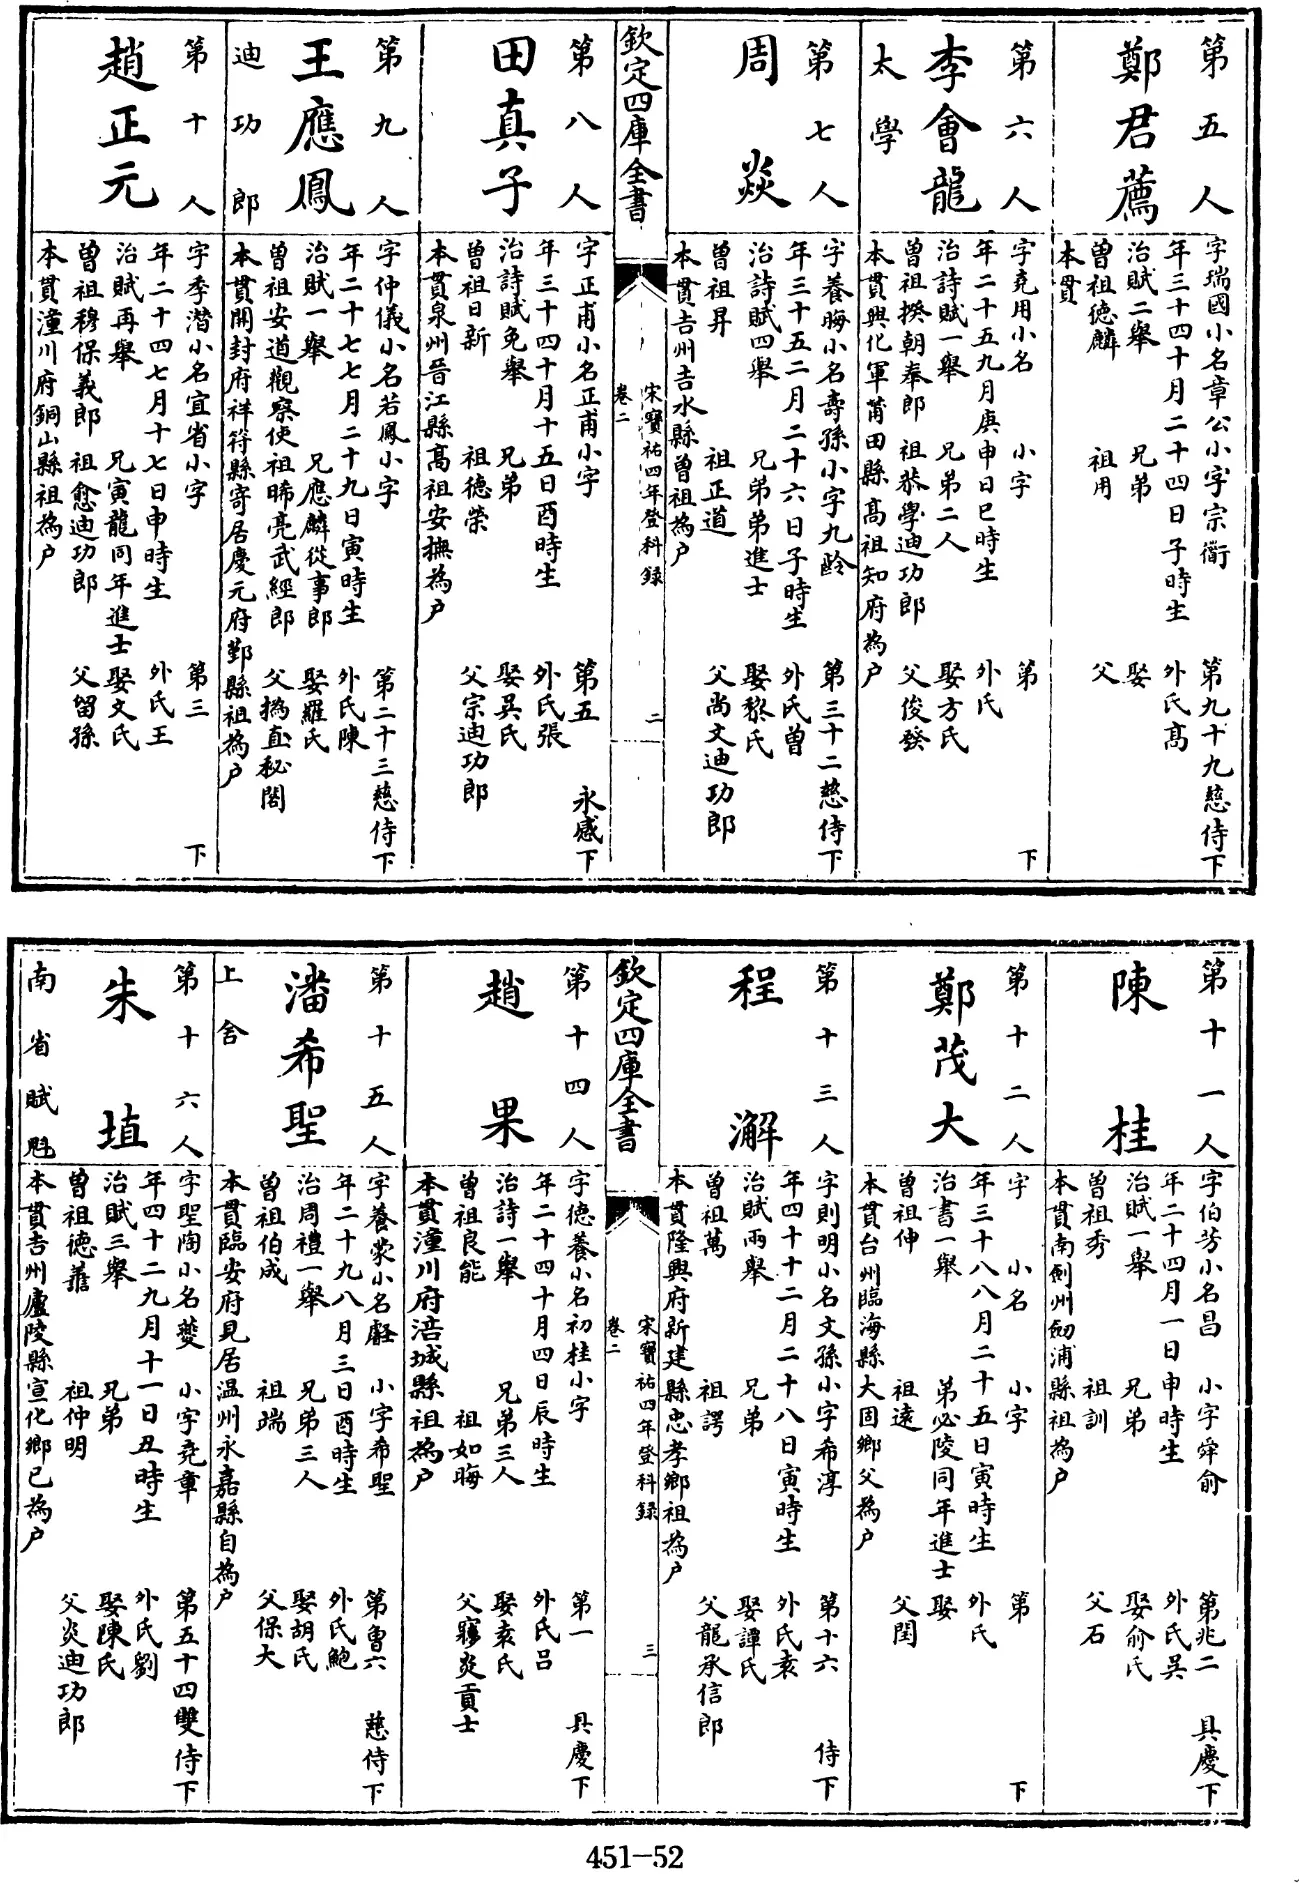 第五人
鄭君薦
字瑞國小名章公小字宗衢 第九十九慈侍下
年三十四十月二十四日子時生 外氏髙
治賦二舉 兄弟 娶
曽祖德麟 祖用 父
本貫
第六人
李會龍
太學
字堯用小名 小字 第 下
年二十五九月庚申日巳時生 外氏
治詩賦一舉 兄弟二人 娶方氏
曽祖揆朝奉郎 祖恭學迪功郎 父俊發
本貫興化軍莆田縣髙祖知府為户
第七人
周焱
字養晦小名壽孫小字九齡 第三十二慈侍下
年三十五二月二十六日子時生 外氏曽
治詩賦四舉 兄弟弟進士 娶黎氏
曽祖昇 祖正道 父尚文迪功郎
本貫吉州吉水縣曽祖為户
欽定四庫全書
宋寶祐四年登科録
卷二
二
第八人
田真子
字正甫小名正甫小字 第五 永感下
年三十四十月十五日酉時生 外氏張
治詩賦免舉 兄弟 娶吳氏
曽祖日新 祖德榮 父宗迪功郎
本貫泉州晉江縣髙祖安撫為户
第九人
王應鳳
迪功郎
字仲儀小名若鳳小字 第二十三慈侍下
年二十七七月二十九日寅時生 外氏陳
治賦一舉 兄應麟從事郎 娶羅氏
曽祖安道觀察使祖晞亮武經郎 父撝直秘閣
本貫開封府祥符縣寄居慶元府鄞縣祖為户
第十人
趙正元
字季潛小名宜省小字 第三 下
年二十四七月十七日申時生 外氏王
治賦再舉 兄寅龍同年進士 娶文氏
曽祖穆保義郎 祖愈迪功郎 父留孫
本貫潼川府銅山縣祖為户
第十一人
陳桂
字伯芳小名昌 小字舜俞 第兆二 具慶下
年二十四月一日申時生 外氏吳
治賦一舉 兄弟 娶俞氏
曽祖秀 祖訓 父石
本貫南劍州劒浦縣祖為户
第十二人
鄭茂大
字 小名 小字 第 下
年三十八八月二十五日寅時生 外氏
治書一舉 弟必陵同年進士 娶
曽祖伸 祖遠 父閏
本貫台州臨海縣大固鄉父為户
第十三人
程澥
字則明小名文孫小字希淳 第十六 侍下
年四十十二月二十八日寅時生 外氏袁
治賦兩舉 兄弟 娶譚氏
曽祖萬 祖諤 父龍承信郎
本貫隆興府新建縣忠孝鄉祖為户
欽定四庫全書
宋寶祐四年登科録
卷二
三
第十四人
趙果
字德養小名初桂小字 第一 具慶下
年二十四十月四日辰時生 外氏呂
治詩一舉 兄弟三人 娶袁氏
曽祖良能 祖如晦 父炎貢士
本貫潼川府涪城縣祖為户
第十五人
潘希聖
上舍
字養蒙小名 小字希聖 第魯六 慈侍下
年二十九八月三日酉時生 外氏鮑
治周禮一舉 兄弟三人 娶胡氏
曽祖伯成 祖端 父保大
本貫臨安府見居温州永嘉縣自為户
第十六人
朱埴
南省賦魁
字聖陶小名夔 小字堯章 第五十四雙侍下
年四十二九月十一日丑時生 外氏劉
治賦三舉 兄弟 娶陳氏
曽祖德 祖仲明 父炎迪功郎
本貫吉州廬陵縣宣化鄉已為户
451-52